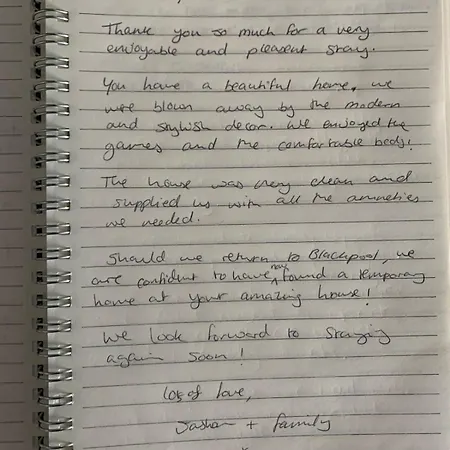 Thank you so much for a very
enjoyable and pleasent stay.
You have a beautiful home, we
were blown away by the modern
and stylish decor. We enjoyed the
games and the comfortable beds!
The house was very clean and
supplied us with all the amneties
we needed.
Should we return to Blackpool, we
are confident to have now found a temporary
home at your amazing house!
We look forward to staying
again soon!
Lots of love,
+ family